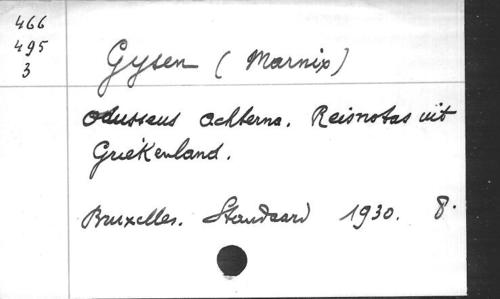 466
495
3
Gysen (Marnix)
Odusseus achterna. Reisnotas uit
Griekenland.
Bruxelles. Standaard 1930. 8.